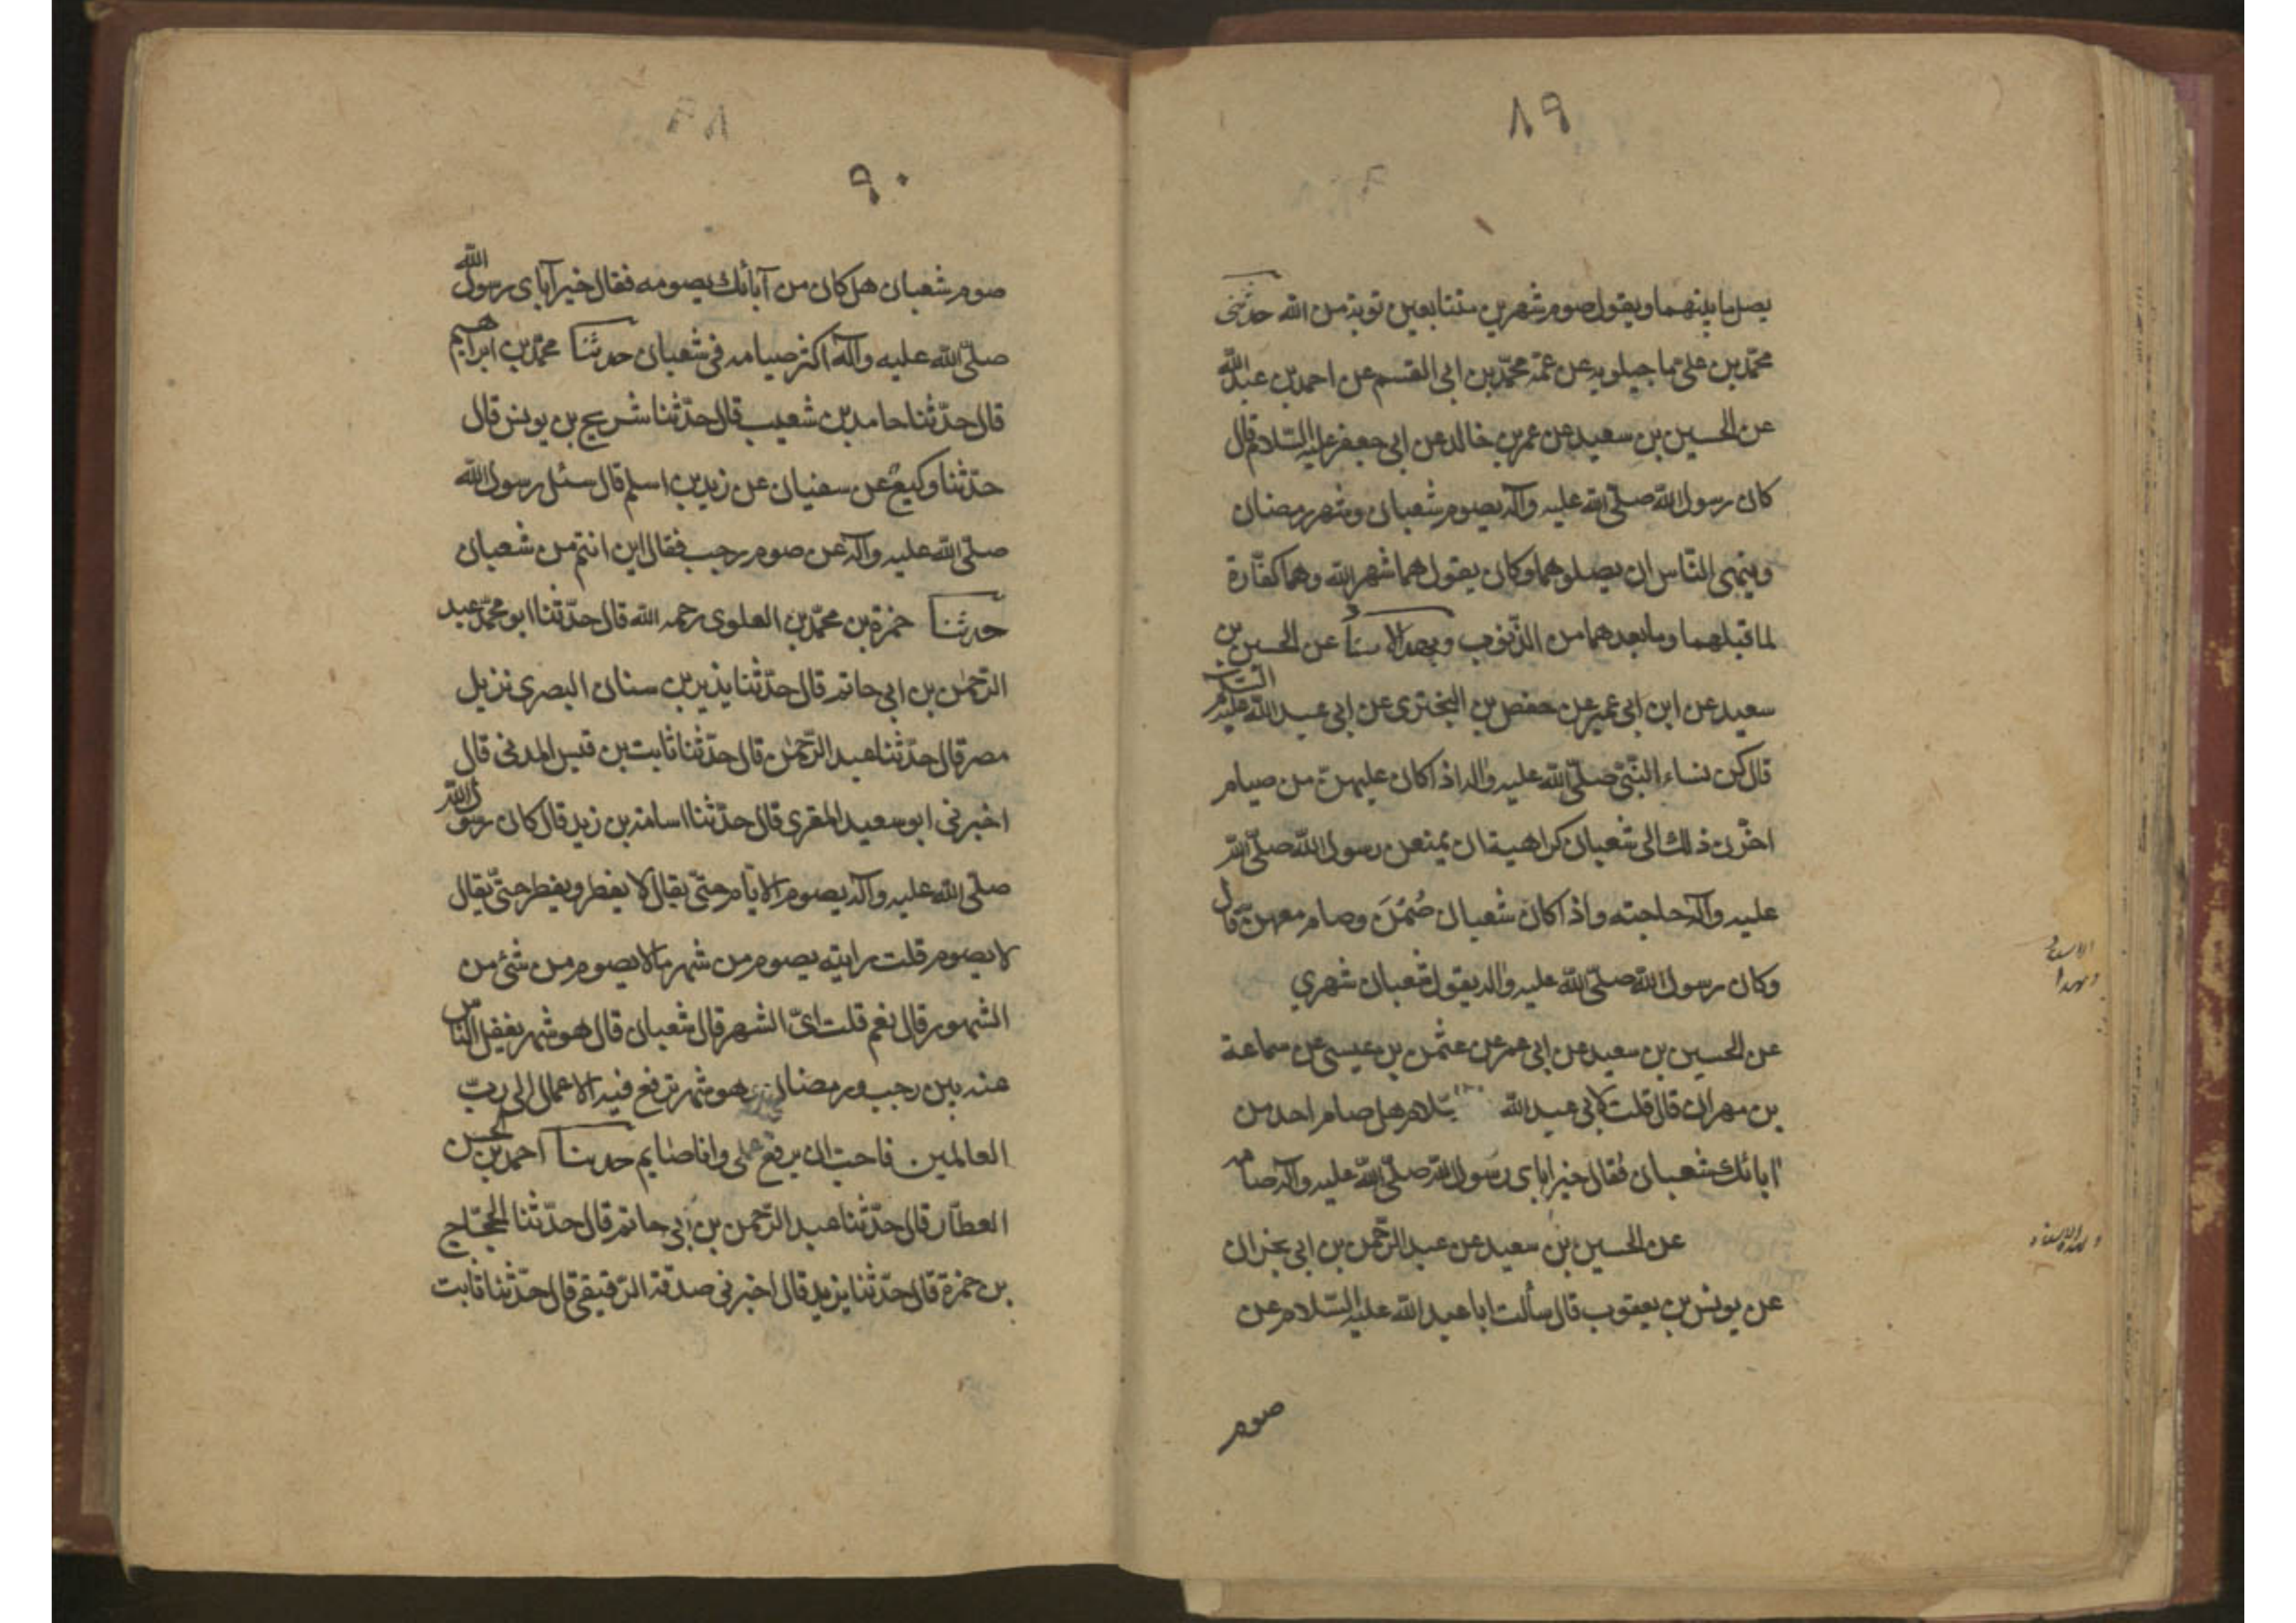 ٨٩
يصل ما بينهما ويقول صوم شهرين متتابعين توبة من الله حدثنى
محمّد بن على ما جيلويه عن عمّه محمّد بن ابى القسم عن احمد بن عبد الله
عن الحسين بن سعيد عن عمر بن خالد عن ابى جعفر عليه السّلام قال
كان رسول الله صلّى الله عليه وآله يصوم شعبان وشهر رمضان
وينهى النّاس ان يصلوهما وكان يقول هما شهر الله وهما كفّارة
لما قبلهما وما بعدهما من الذّنوب وبهذا الاسناد عن الحسين بن
سعيد عن ابن ابى عمير عن حفص بن البخترى عن ابى عبد الله عليه السّلام
قال كن نساء النّبىّ صلّى الله عليه واله اذا كان عليهنّ من صيام
اخّرن ذلك الى شعبان كراهية ان يمنعن رسول الله صلّى الله
عليه وآله حاجته واذا كان شعبان صُمْنَ وصام معهنّ قال
وكان رسول الله صلّى الله عليه واله يقول شعبان شهري
عن الحسين بن سعيد عن ابى عمر عن عثمن بن عيسى عن سماعة
بن مهران قال قلت لابى عبد الله السّلام هل صام احد من
ابائك شعبان فقال خير اباى رسول الله صلّى الله عليه وآله صامه
عن الحسين بن سعيد عن عبد الرّحمن بن ابى نجران
عن يونس بن يعقوب قال سألت ابا عبد الله عليه السّلام عن
صوم
الاسناد
وبهذا
وبهذا الاسناد
٩٠
صوم شعبان هل كان من آبائك يصومه فقال خير آباى رسول الله
صلّى الله عليه وآله اكثر صيامه فى شعبان حدثنا محمّد بن ابراهيم
قال حدّثنا حامد بن شعيب قال حدّثنا شريح بن يونس قال
حدّثنا وكيع عن سفيان عن زيد بن اسلم قال سئل رسول الله
صلّى الله عليه وآله عن صوم رجب فقال اين انتم من شعبان
حدثنا حمزة بن محمّد بن العلوى رحمه الله قال حدّثنا ابو محمّد عبد
الرّحمن بن ابى حاتم قال حدّثنا يذير بن سنان البصرى نزيل
مصر قال حدّثنا عبد الرّحمن قال حدّثنا ثابت بن قيس المدنى قال
اخبرنى ابو سعيد المقرى قال حدّثنا اسامة بن زيد قال كان رسول الله
صلّى الله عليه وآله يصوم الايام حتّى يقال لا يفطر ويفطر حتّى يقال
لا يصوم قلت رايته يصوم من شهر ما لا يصوم من شئ من
الشهور قال نعم قلت اىّ الشهر قال شعبان قال هو شهر يغفل النّاس
عنه بين رجب ورمضان وهو شهر ترفع فيه الاعمال الى ربّ
العالمين فاحب ان يرفع عملى وانا صايم حدثنا احمد بن الحسن
العطّار قال حدّثنا عبد الرّحمن بن أبى حاتم قال حدّثنا الحجّاج
بن حمزة قال حدّثنا يزيد قال اخبرنى صدقة الدّقيقى قال حدّثنا ثابت